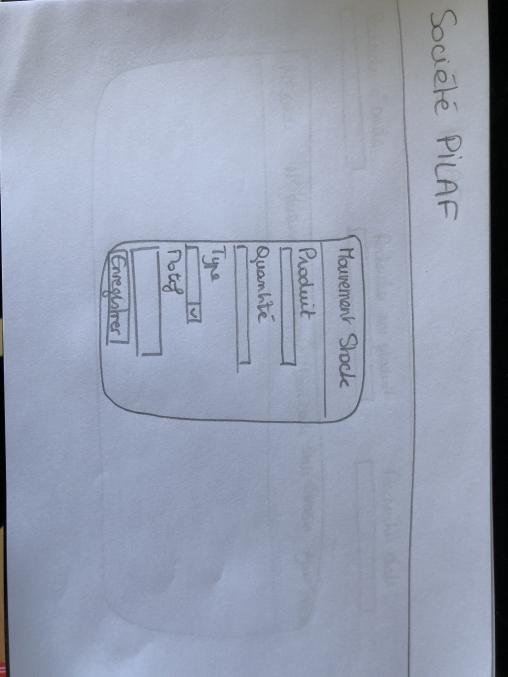 Société PILAF
Mouvement Stock
Produit
Quantité
Type
Motif
Enregistrer